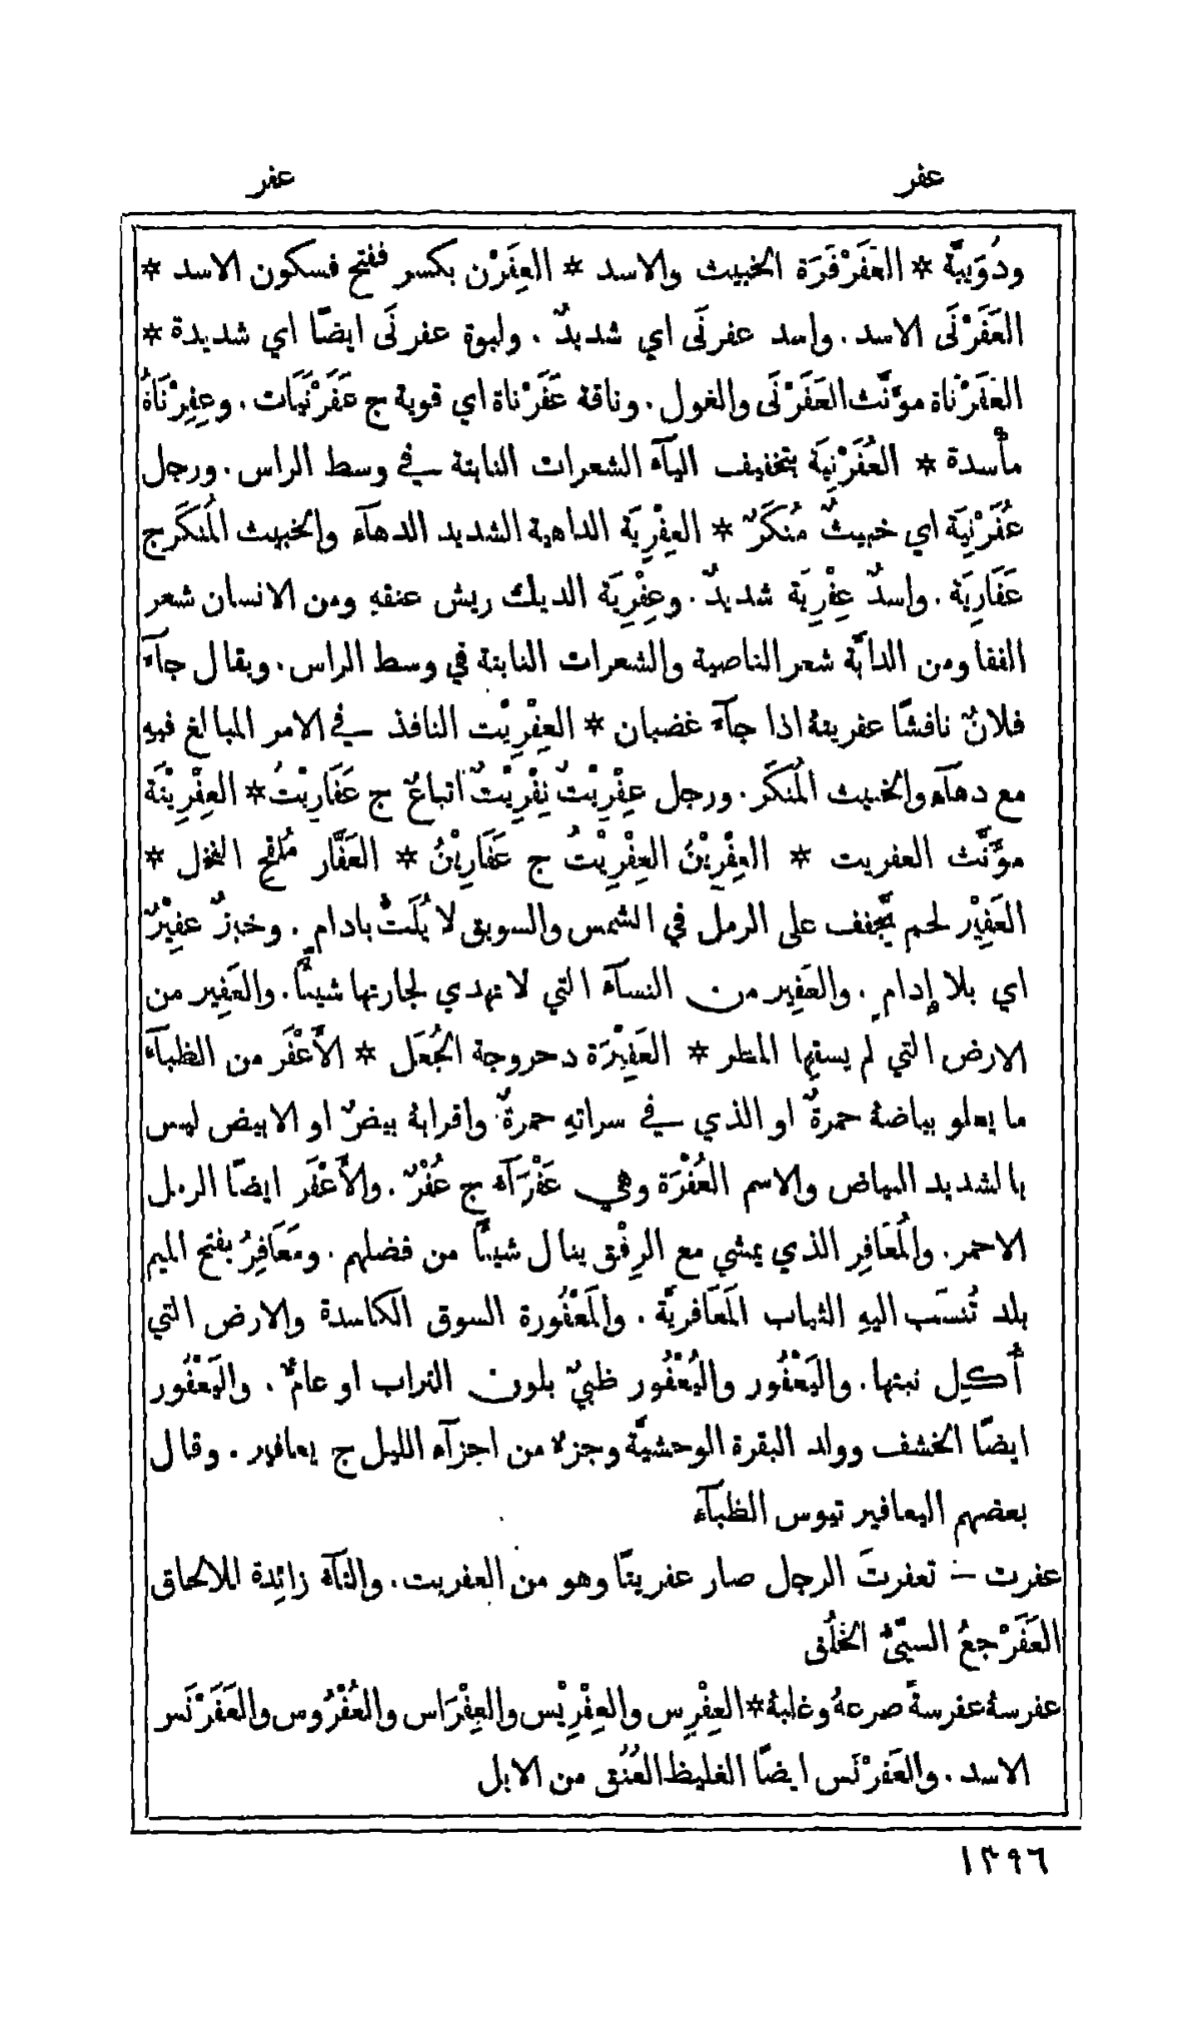 عفر
عفر
ودُوَيبَّة * العَفَرْفَرَة الخبيث والاسد * العِفَرْن بكسر ففتح فسكون الاسد *
العَفَرْنَى الاسد. واسد عفرنَى اي شديدٌ. ولبوة عفرنَى ايضًا اي شديدة *
العَفَرْنَاة مؤَنَّث العَفَرْنَى والغول. وناقة عَفَرْناة اي قوية ج عَفَرْنَيَات. وعِفِرْنَاةُ
مأْسدة * العُفَرْنِيَة بتخفيف اليآءِ الشعرات النابتة في وسط الراس. ورجل
عُفَرْنِيَة اي خبيثٌ مُنكَرٌ * العِفْرِيَة الداهية الشديد الدهآءِ والخبيث المُنكَر ج
عَفَارِيَة. واسدٌ عِفْرِيَة شديدٌ. وعِفْرِيَة الديك ريش عنقهِ ومن الانسان شعر
القفا ومن الدابَّة شعر الناصية والشعرات النابتة في وسط الراس. ويقال جآءَ
فلانٌ نافشًا عفريتهُ اذا جآءَ غضبان * العِفْرِيْت النافذ في الامر المبالغ فيهِ
مع دهآءٍ والخبيث المُنكَر. ورجل عِفْرِيْتٌ نِفْرِيْتٌ اتباعٌ ج عَفَارِيْتُ * العِفْرِيْتَة
مؤَنَّث العفريت * العِفْرِيْنُ العِفْرِيْتُ ج عَفَارِيْنُ * العَفَّار مُلقح النخل *
العَفِيْر لحم يُجفَّف على الرمل في الشمس والسويق لا يُلَتُّ بادامٍ. وخبزٌ عفِيْرٌ
اي بلا إدامٍ. والعَفِير من النسآءِ التي لا تهدي لجارتها شيئًا. والعَفِير من
الارض التي لم يسقِها المطر * العَفِيْرَة دحروجة الجُعَل * الأَعْفَر من الظبآءِ
ما يعلو بياضهُ حمرةٌ او الذي في سراتهِ حمرةٌ واقرابهُ بيضٌ او الابيض ليس
بالشديد البياض والاسم العُفْرَة وهي عَفْرَآءُ ج عُفْرٌ. والأَعْفَر ايضًا الرمل
الاحمر. والمُعَافِر الذي يمشي مع الرِفْق ينال شيئًا من فضلهم. ومَعَافِرُ بفتح الميم
بلد تُنسَب اليهِ الثياب المَعَافريَّة. والمَعْفُورة السوق الكاسدة والارض التي
أُكِل نبتها. واليَعْفُور واليُعْفُور ظبيٌ بلون التراب او عامٌّ. واليَعْفُور
ايضًا الخشف وولد البقرة الوحشيَّة وجزءٌ من اجزآءِ الليل ج يعافير. وقال
بعضهم اليعافير تيوس الظبآءِ
عفرت — تعفرتَ الرجل صار عفريتًا وهو من العفريت. والتآءُ زائِدة للالحاق
العَفَرْجعُ السيّئُ الخُلُق
عفرسهُ عفرسةً صرعهُ وغلبهُ * العِفْرِس والعِفْرِيْس والعِفْرَاس والعُفْرُوس والعَفَرْنَس
الاسد. والعَفرْنَس ايضًا الغليظ العُنُق من الابل
١٣٩٦